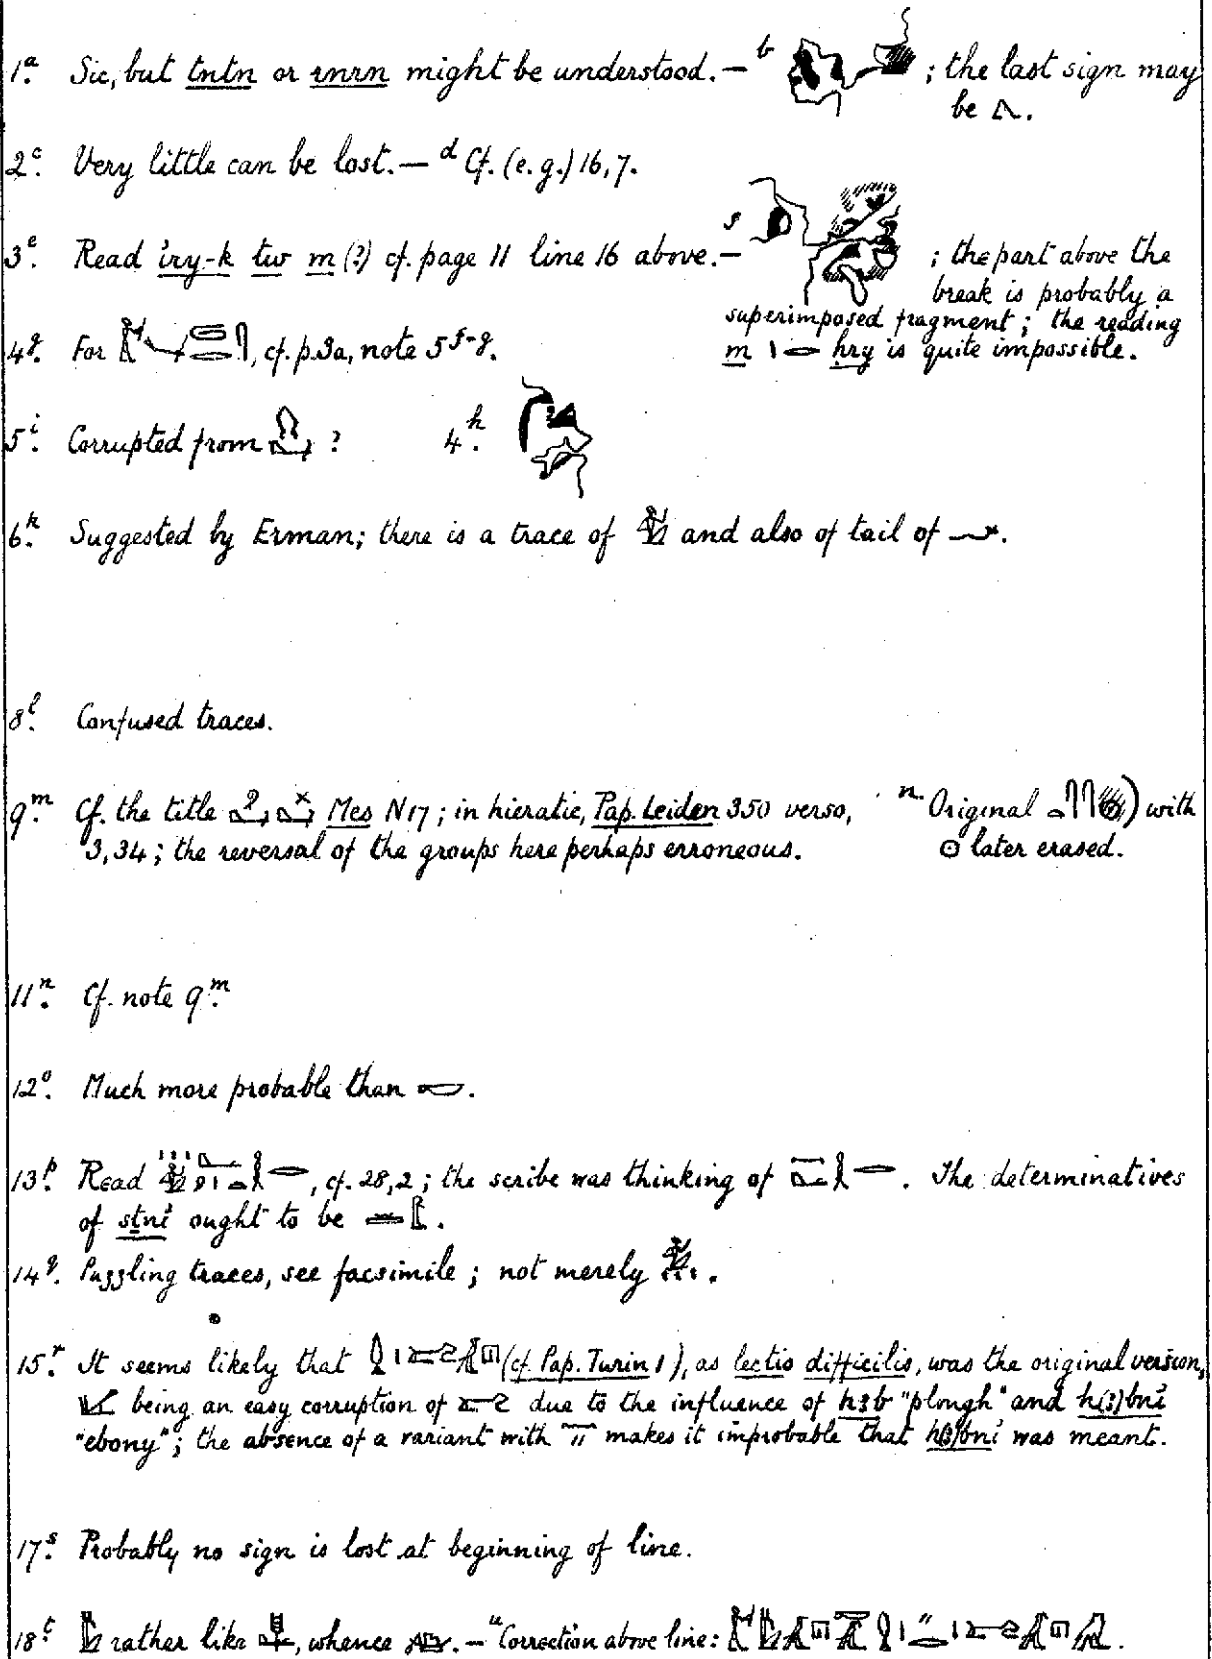 1.a Sic, but tntn or rnrn might be understood. — b ; the last sign may
be 𓈎.
2.c Very little can be lost. — d Cf. (e.g.) 16, 7.
3.e Read iry-k tw m (?) cf. page 11 line 16 above. — f ; the part above the
break is probably a
superimposed fragment; the reading
m hry is quite impossible.
4.g For , cf. p. 3a, note 5 f-g.
5.i Corrupted from ? 4.h
6.k Suggested by Erman; there is a trace of and also of tail of 𓆑.
8.l Confused traces.
9.m Cf. the title Mes N17; in hieratic, Pap. Leiden 350 verso,
3,34; the reversal of the groups here perhaps erroneous.
n. Original with
𓇳 later erased.
11.n Cf. note 9.m
12.o Much more probable than .
13.p Read , cf. 28,2; the scribe was thinking of . The determinatives
of sṯni ought to be .
14.q Puzzling traces, see facsimile; not merely .
15.r It seems likely that (cf. Pap. Turin 1), as lectio difficilis, was the original version,
being an easy corruption of due to the influence of hꜣb "plough" and h(ꜣ)bni
"ebony"; the absence of a variant with makes it improbable that h(ꜣ)bni was meant.
17.s Probably no sign is lost at beginning of line.
18.t rather like , whence . — u Correction above line: .